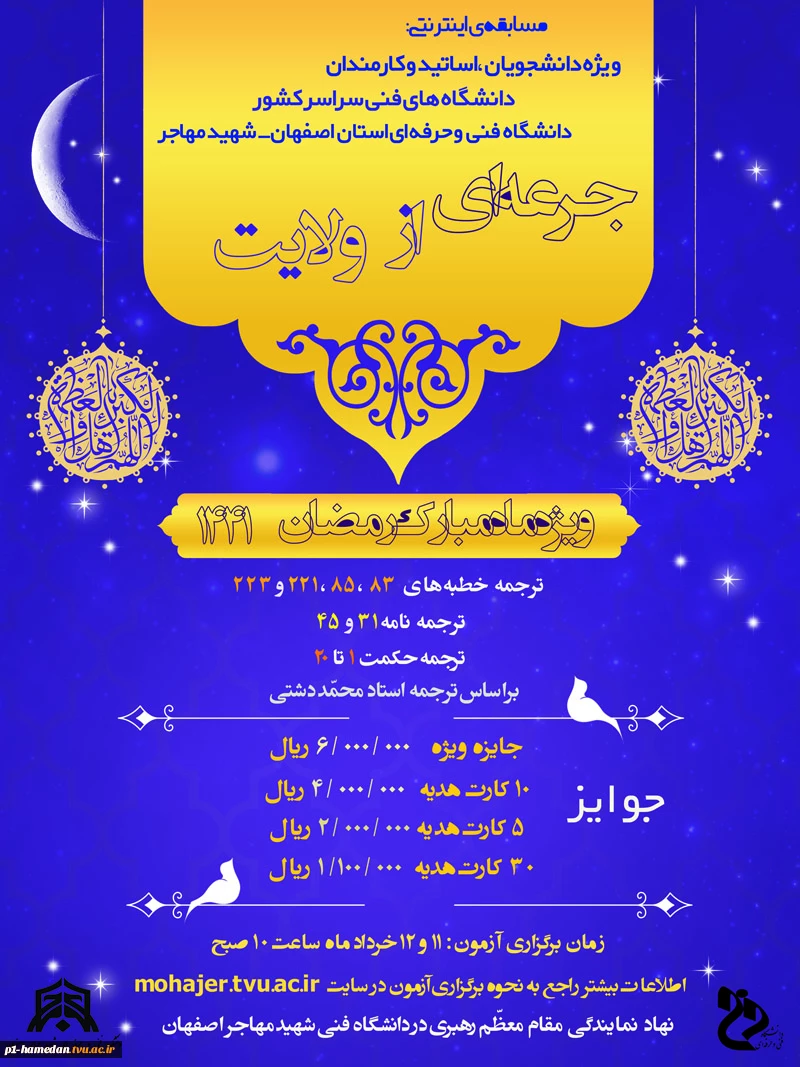 مسابقه‌ی اینترنتی:
ویژه دانشجویان، اساتید و کارمندان
دانشگاه های فنی سراسر کشور
دانشگاه فنی و حرفه ای استان اصفهان_ شهید مهاجر
جرعه‌ای از ولایت
ویژه ماه مبارک رمضان ۱۴۴۱
ترجمه خطبه های ۸۳ ،۸۵ ،۲۲۱ و ۲۲۳
ترجمه نامه ۳۱ و ۴۵
ترجمه حکمت ۱ تا ۲۰
براساس ترجمه استاد محمّد دشتی
جوایز
جایزه ویژه ۶/۰۰۰/۰۰۰ ریال
۱۰ کارت هدیه ۴/۰۰۰/۰۰۰ ریال
۵ کارت هدیه ۲/۰۰۰/۰۰۰ ریال
۳۰ کارت هدیه ۱/۱۰۰/۰۰۰ ریال
زمان برگزاری آزمون: ۱۱ و ۱۲ خرداد ماه ساعت ۱۰ صبح
اطلاعات بیشتر راجع به نحوه برگزاری آزمون در سایت mohajer.tvu.ac.ir
نهاد نمایندگی مقام معظّم رهبری در دانشگاه فنی شهید مهاجر اصفهان
p1-hamedan.tvu.ac.ir